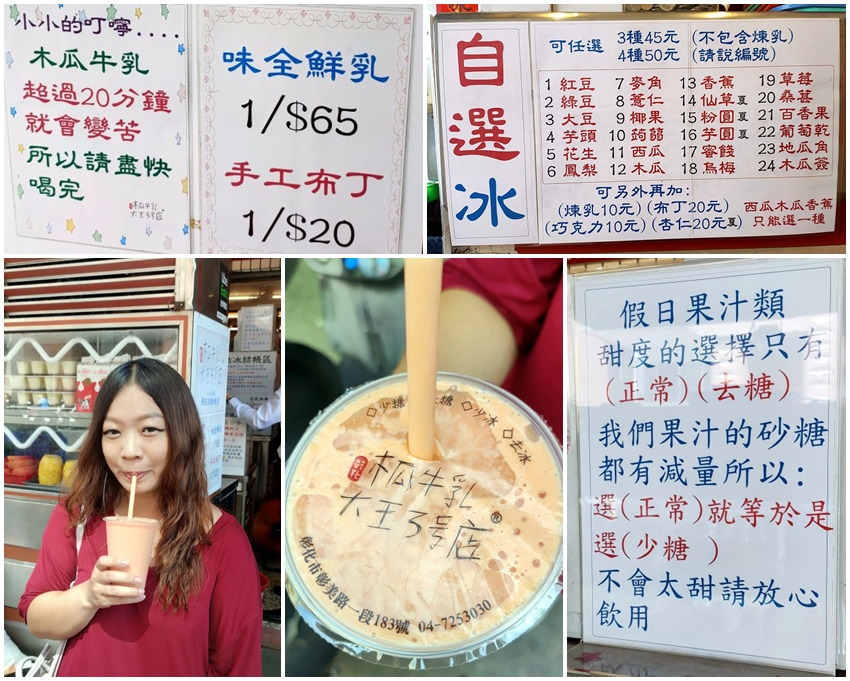 小小的叮嚀....
木瓜牛乳
超過20分鐘
就會變苦
所以請盡快
喝完
木瓜牛乳
大王3号店
味全鮮乳
1/$65
手工布丁
1/$20
自選冰
可任選 3種45元 (不包含煉乳)
4種50元 (請說編號)
1 紅豆 7 麥角 13 香蕉 19 草莓
2 綠豆 8 薏仁 14 仙草夏 20 桑葚
3 大豆 9 椰果 15 粉圓夏 21 百香果
4 芋頭 10 蒟蒻 16 芋圓夏 22 葡萄乾
5 花生 11 西瓜 17 蜜餞 23 地瓜角
6 鳳梨 12 木瓜 18 烏梅 24 木瓜簽
可另外再加:
(煉乳10元) (布丁20元)
(巧克力10元) (杏仁20元夏)
西瓜木瓜香蕉
只能選一種
冰結帳區
少糖 去糖 少冰 去冰
木瓜牛乳
大王3号店®
彰化市彰美路一段183號 04-7253030
假日果汁類
甜度的選擇只有
(正常)(去糖)
我們果汁的砂糖
都有減量所以:
選(正常)就等於是
選(少糖 )
不會太甜請放心
飲用